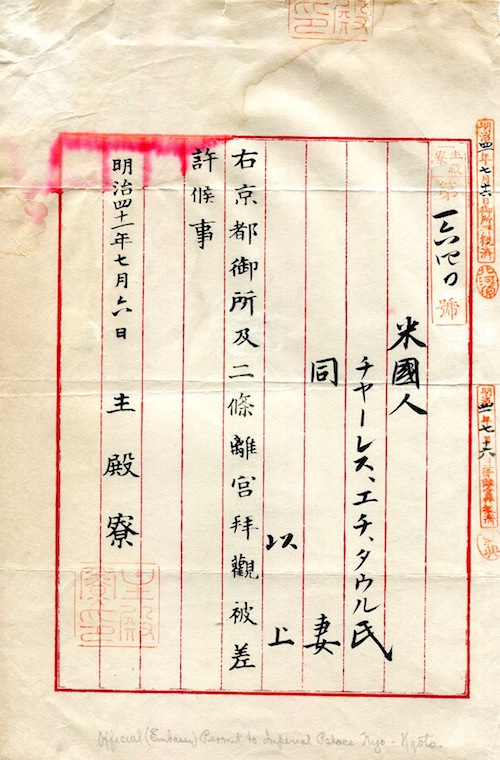 主殿寮
第一六四〇號
米國人
チヤーレス、エチ、タウル氏
同 妻
以上
右京都御所及二條離宮拝觀被差
許候事
明治四十一年七月六日 主殿寮
主殿寮印
Official (Embassy) Permit to Imperial Palace Nijo - Kyoto.